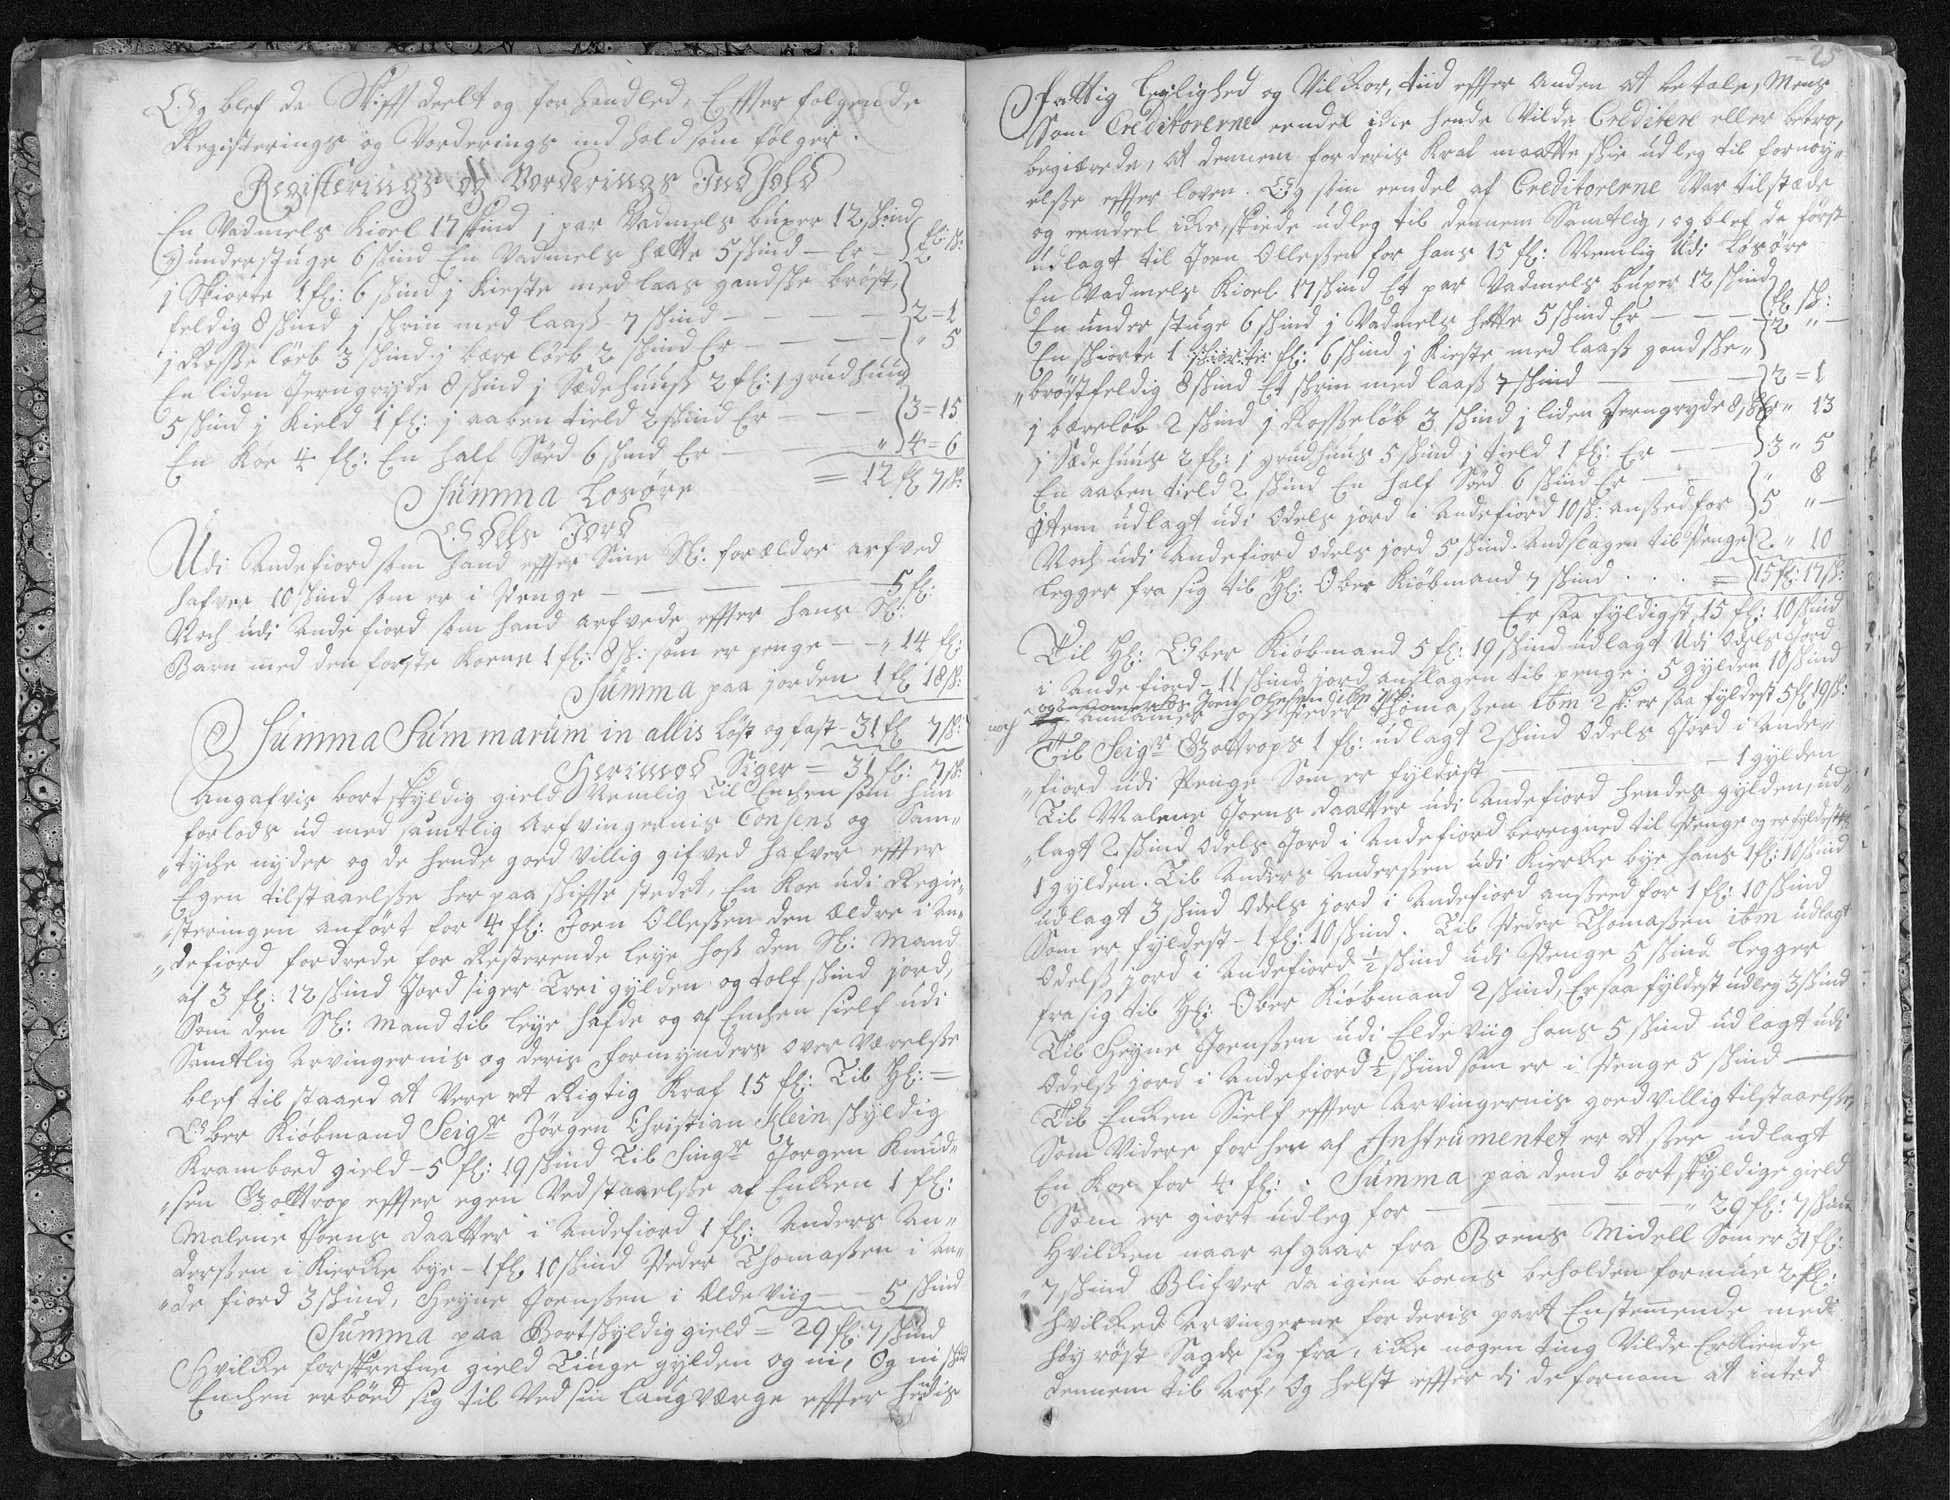 Og blef da Skifft deelt og forhandled, Effter følgende
Registerings og Vorderings indhold som følger:
Registerings og Vorderings Indhold
En Vadmels Kioel 17 skind j par Vadmels buxer 12 skind
j understuge 6 skind En Vadmels hætte 5 skind — Er — 2 fl: sk:
j Skiorte 1 fl: 6 skind j Kieste med laas gandske brøst,
feldig 8 skind j skrin med laass 7 skind — — — 2 = 1
j Rosse løeb 3 skind j bare løeb 2 skind Er — — — " 5
En liden Jerngryde 8 skind j Sædehuus 2 fl: j grudhuus
5 skind j Kield 1 fl: j aaben tield 2 skind Er — — 3 = 15
En Koe 4 fl: En half Sœd 6 skind Er — — " 4 = 6
Summa Losøre = 12 fl 7 sk:
Odels Jord
Udi Andefiord som hand effter Sine Sl: forældre arfved
hafver 10 skind som er i Penge — — — 5 fl:
Noch udi Andefiord som hand arfvede effter hans Sl:
Barn med den forste Koene 1 fl: 8 sk: som er penge — " 14 fl:
Summa paa jorden 1 fl 18 sk:
Summa Summarum in allis Løst og fast — 31 fl 7 sk:
Herimod Siger = 31 fl: 7 sk:
Angafvis bortskyldig gield Nemlig Til Enchen som hun
forlods ud med samtlig Arfvingernis Consens og Sam„
„tyche nyder og de hende goed villig gifved hafver effter
Egen tilstaaelsse her paa skiffte stedet, En Koe udi Regie„
„steringen anført for 4 fl: Joen Ollessen den Ældre i An„
„defiord fordrede for Resterende leye hoss den Sl: Mand
af 3 fl: 12 skind Jord siger Trei gylden og tolf skind jord,
Som den Sl: Mand til leye hafde og af Enchen sielf udi
Samtlig Arvingernis og deris formynders over Værelsse
blef til staaed at Vere et Rigtig Kraf 15 fl: Til Hl: =
Ober Kiøbmand Seigr Jørgen Christian Klein skyldig
Kramboed gield — 5 fl: 19 skind Til Singr Jorgen Knud„
„sen Gottrop effter egen Vedstaaelsse af Encken 1 fl:
Malene Joens daatter i Andefiord 1 fl: Anders An„
derssen i Kiercke bye — 1 fl 10 skind Peder Thomassen i An„
„de fiord 3 skind, Heyne Joenssen i Elde Viig — 5 skind
Summa paa Bortskyldig gield = 29 fl: 7 skind
Hvilke forskrefne gield Tiuge gylden og ni, Og ni skind
Enchen erbœd sig til Ved sin laugværge effter hendis
25
fattig Leylighed og Vilckor, tiid effter anden at betale, Mens
Som Creditorerne eendel icke hende Vilde Creditere eller betro,
begierede, at dennem for deris Kraf maatte skie udleg til fornøy„
elsse effter loven. Og siin eendel af Creditorerne Var tilstæde
og eendeel icke, skiede udleg til dennem Samtlig, og blef da först
udlagt til Joen Ollessen for hans 15 fl: Nemlig Udi Losøre
En Vadmels Kioel 17 skind Et par Vadmels buxer 12 skind
En under stuge 6 skind j Vadmels hette 5 skind Er — — fl sk: 2 " —
En skiorte 1 fl: 6 skind j Kieste med laass gandske„
„brøstfeldig 8 skind Et skrin med laass 7 skind — — 2 = 1
j bæreløb 2 skind j Rosseløb 3 skind j liden Jerngryde 8 sk: Er " 13
j Sædehuus 2 fl: j grudhuus 5 skind j tield 1 fl: Er — — 3 " 5
En aaben tield 2 skind En half Sœd 6 skind Er — — " 8
Item udlagt udi Odels jord i Andefiord 10 sk: anssed for 5 " —
Noch udi Andefiord Odels jord 5 skind. Andslagen til Penge 2 " 10
legger fra sig til Hl: Ober Kiøbmand 7 skind . . . = 15 fl: 17 sk:
Er saa fyldigst, 15 fl: 10 skind
Til Hl: Ober Kiøbmand 5 fl: 19 skind udlagt Udi Odels Jord
i Ande fiord — 11 skind jord anslagen til penge. 5 gylden 10 skind
noch
og annamer hos Joen Olesen dito 7 sk:
annamer hoss Peder Thomassen ibm 2 sk: er saa fyldest 5 fl 19 sk:
Til Seigr Gottrops 1 fl: udlagt 2 skind Odels Jord i Ande„
„fiord udi Penge Som er fyldest — — — 1 gylden
Til Malene Joens daatter udi Andefiord hendes gylden, ud„
„lagt 2 skind Odels Jord i Andefiord beregned til Penge og er fyldest
1 gylden. Til Anders Anderssen udi Kiercke bye hans 1 fl: 10 skind
udlagt 3 skind Odels jord i Andefiord ansseed for 1 fl: 10 skind
Som er fyldest — 1 fl: 10 skind. Til Peder Thomassen ibm udlagt
Odelss jord i Andefiord ½ skind udi Penge 5 skind legger
fra sig til Hl: Ober Kiøbmand 2 skind, Er saa fyldest udleg 3 skind
Til Heyne Joenssen udi Elde viig hans 5 skind udlagt udi
Odelss jord i Andefiord ½ skind som er i Penge 5 skind —
Til Encken Sielf effter Arvingernis goed villig tilstaaelsse,
Som Videre for her af Instrumentet er at see udlagt
En Koe for 4 fl: . Summa paa dend bortskyldige gield
Som er giort udleg for — — — " 29 fl: 7 skind
Hvilcken naar afgaar fra Boens Midell Som er 31 fl:
„7 skind Blifver da igien boens beholden formue 2 fl:
hvilcked Arvingerne for deris part Enstemende med
høy røst Sagde sig fra, icke nogen ting Vilde Erkiende
dennem til Arf, Og helst effter di de fornam at inted